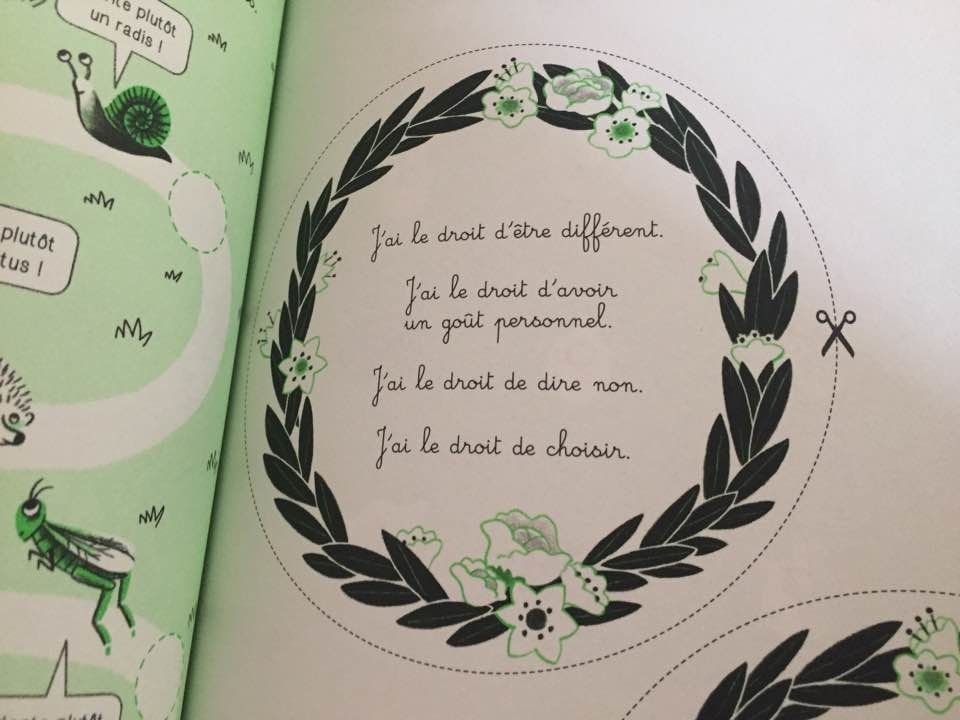 plutôt
un radis !
plutôt
J'ai le droit d'être différent.
J'ai le droit d'avoir
un goût personnel.
J'ai le droit de dire non.
J'ai le droit de choisir.
plutôt